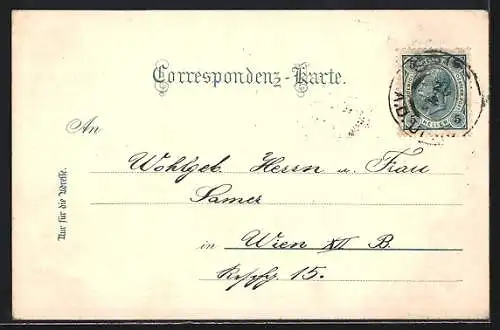 Correspondenz-Karte.
5 HELLER 5
An
Wohlgeb. Herrn u. Frau
Samer
in Wien XII B.
15.
Nur für die Adresse.